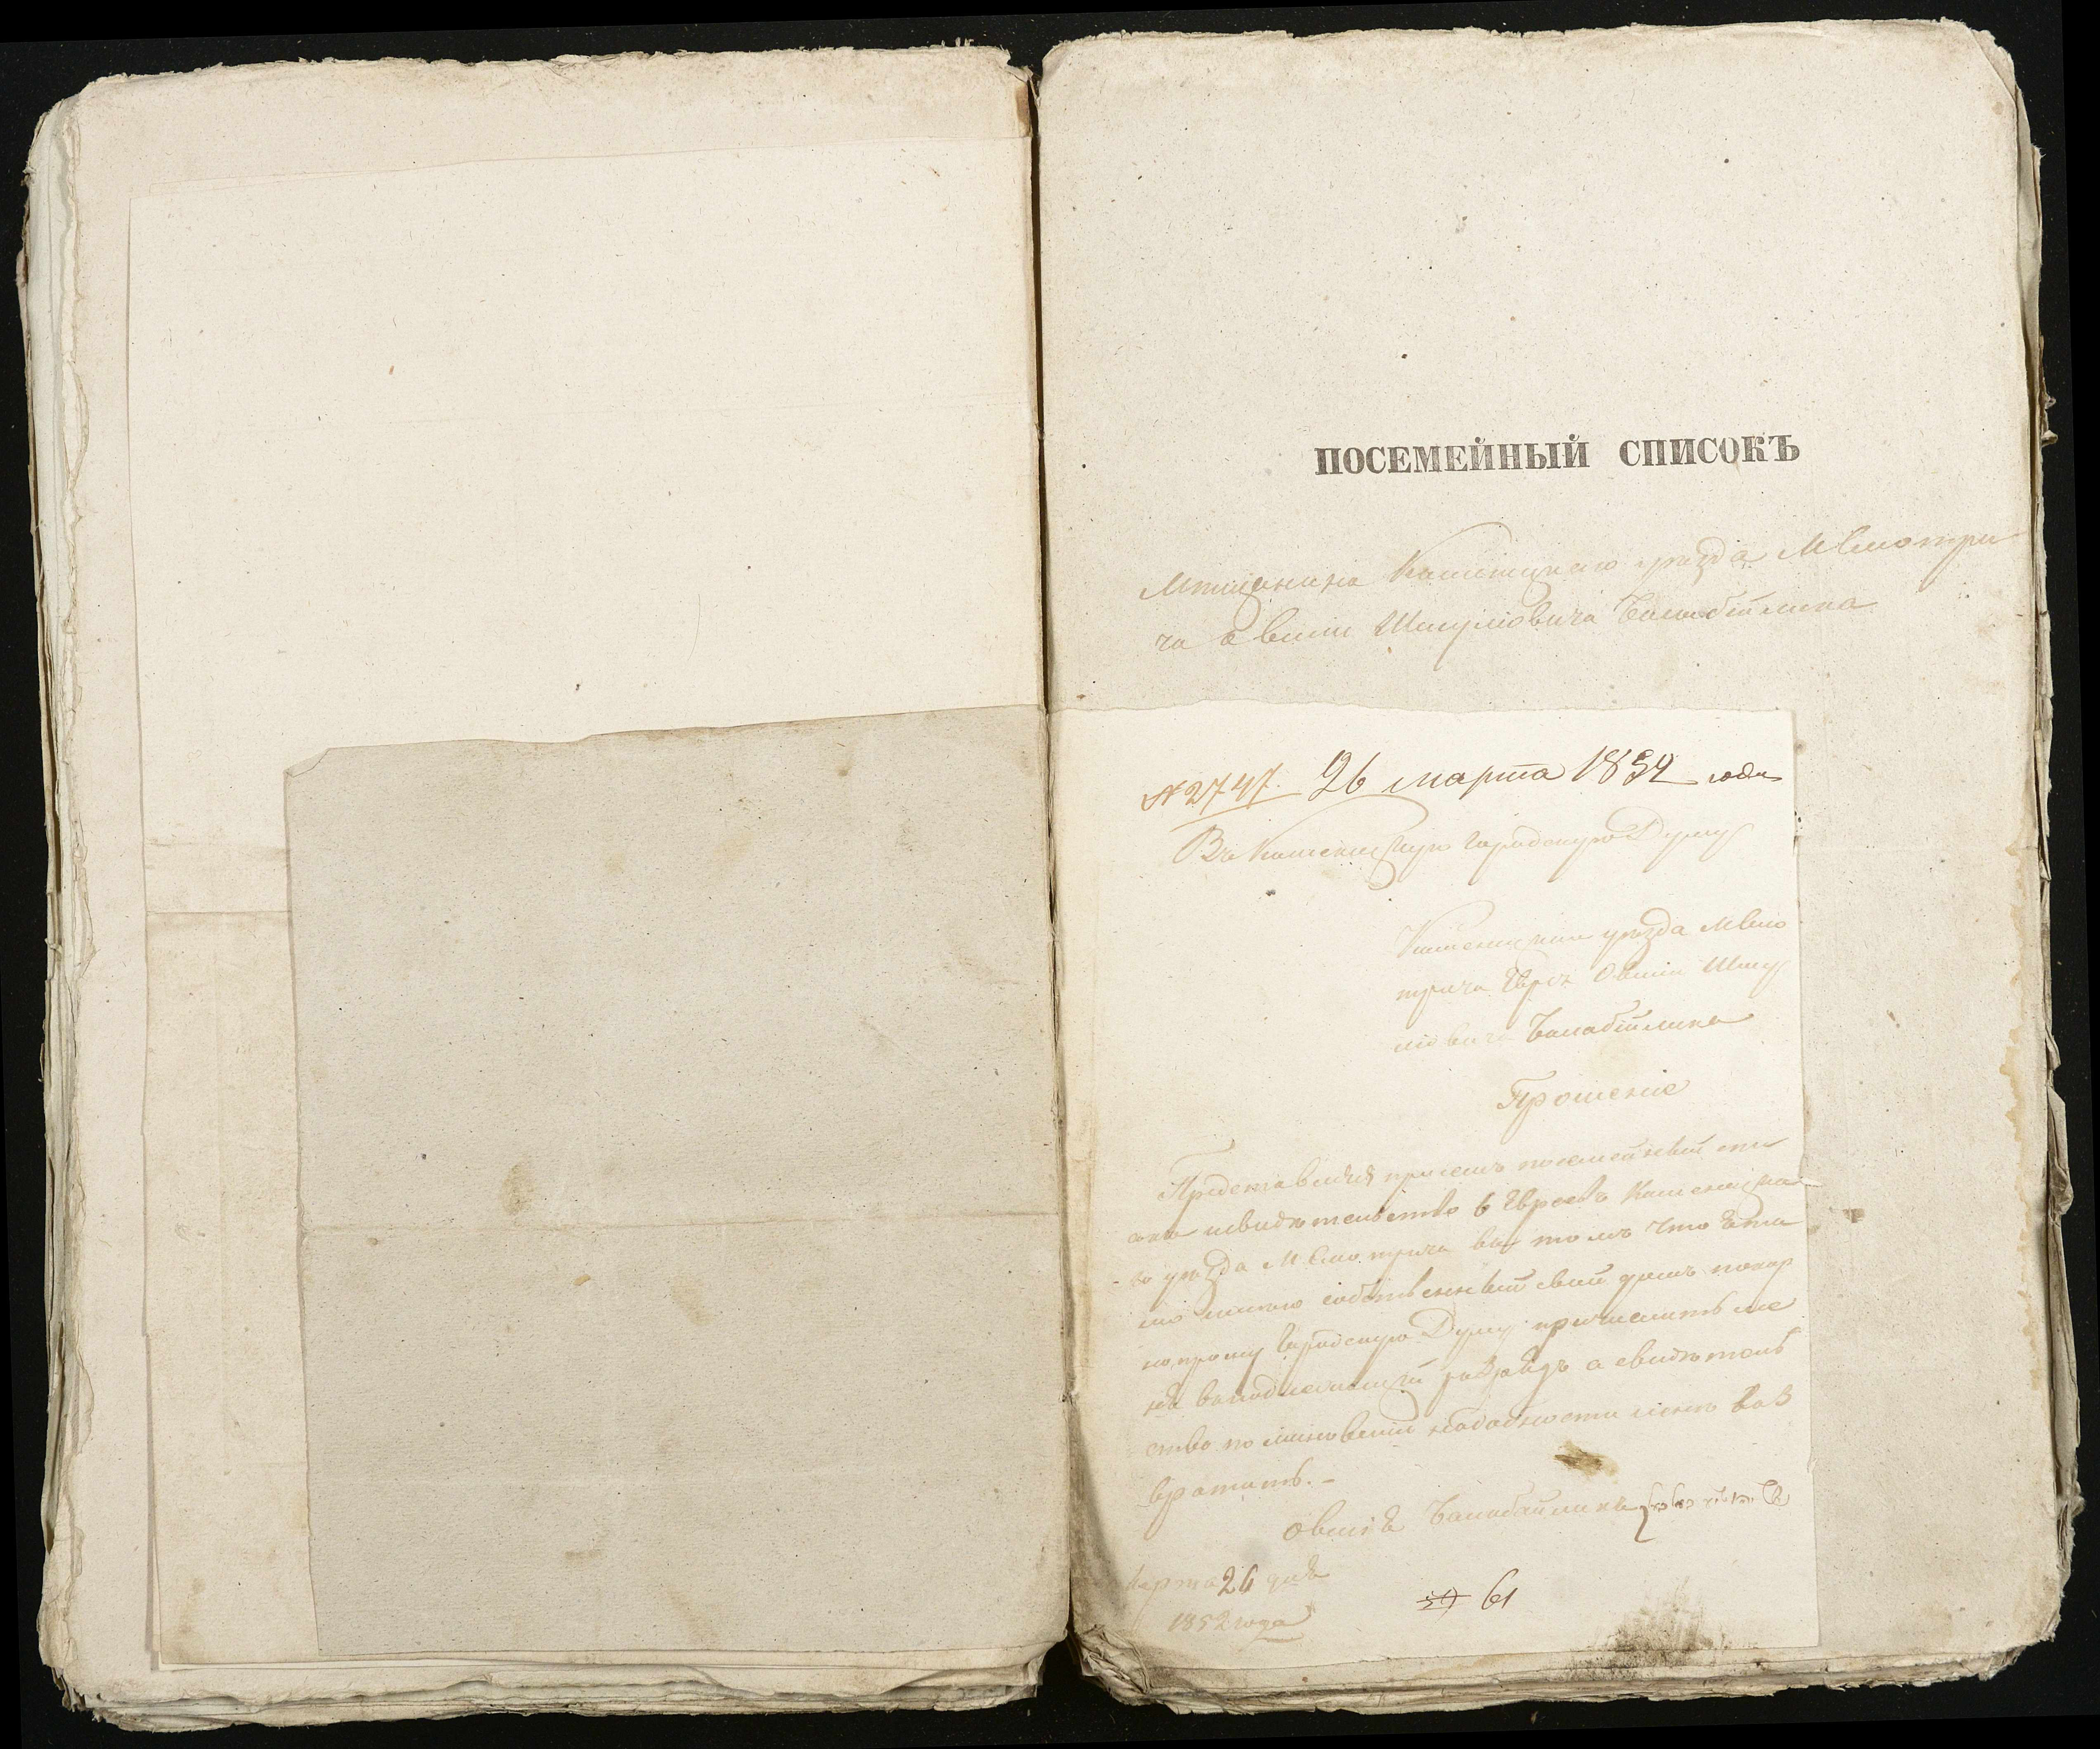 ПОСЕМЕЙНЫЙ СПИСОКЪ
Мѣщанина Каменецкаго уѣзда М Смотри
ча Овшіи Шмулiовича Балабайлика
№ 2747. 26 марта 1852 года
Въ Каменецкую Городскую Думу
Каменецкаго уѣзда М Смо
трича Еврея Овшіи Шму
лiовича Балабайлика
Прошеніе
Представляя при семъ посемейный спи
сокъ и свидѣтельство 6 Евреевъ Каменецка
го уѣзда М. Смотрича въ томъ что я
имѣю собственный свой домъ покор
но прошу Городскую Думу причислить ме
ня разрядъ а свидѣтель
ство по минованіи надобности мнѣ воз
вратить. -
Овшія Балабайликъ
Марта 26 дня
1852 года
61